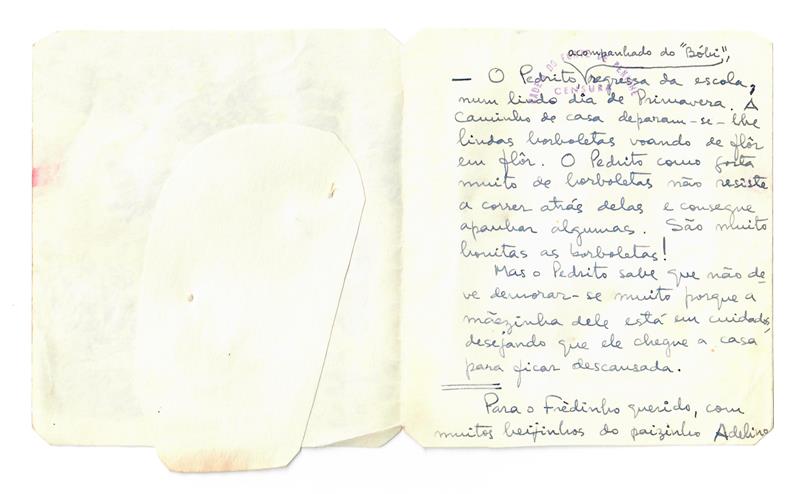 acompanhado do "Bóbi",
— O Pedrito regressa da escola,
num lindo dia de Primavera. A
caminho de casa deparam-se-lhe
lindas borboletas voando de flôr
em flôr. O Pedrito como gosta
muito de borboletas não resiste
a correr atrás delas e consegue
apanhar algumas. São muito
bonitas as borboletas!
Mas o Pedrito sabe que não de-
ve demorar-se muito porque a
mãezinha dele está em cuidados,
desejando que ele chegue a casa
para ficar descansada.
Para o Frèdinho querido, com
muitos beijinhos do paizinho Adelino
CADEIA DO FORTE DE PENICHE
CENSURA